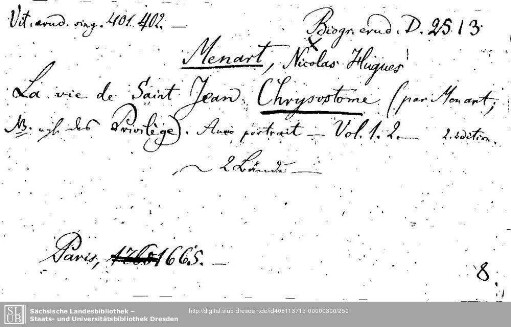 Vit. erud. sing. 401. 402. —
Biogr. erud. D. 2513
Menart, Nicolas Hugues
La vie de Saint Jean Chrysostome (par Menart,
NB. vgl. des Privilège). Avec portrait — Vol. 1. 2. — 2. edition.
2 Bände —
Paris, 1665. —
8.
Sächsische Landesbibliothek –
Staats- und Universitätsbibliothek Dresden